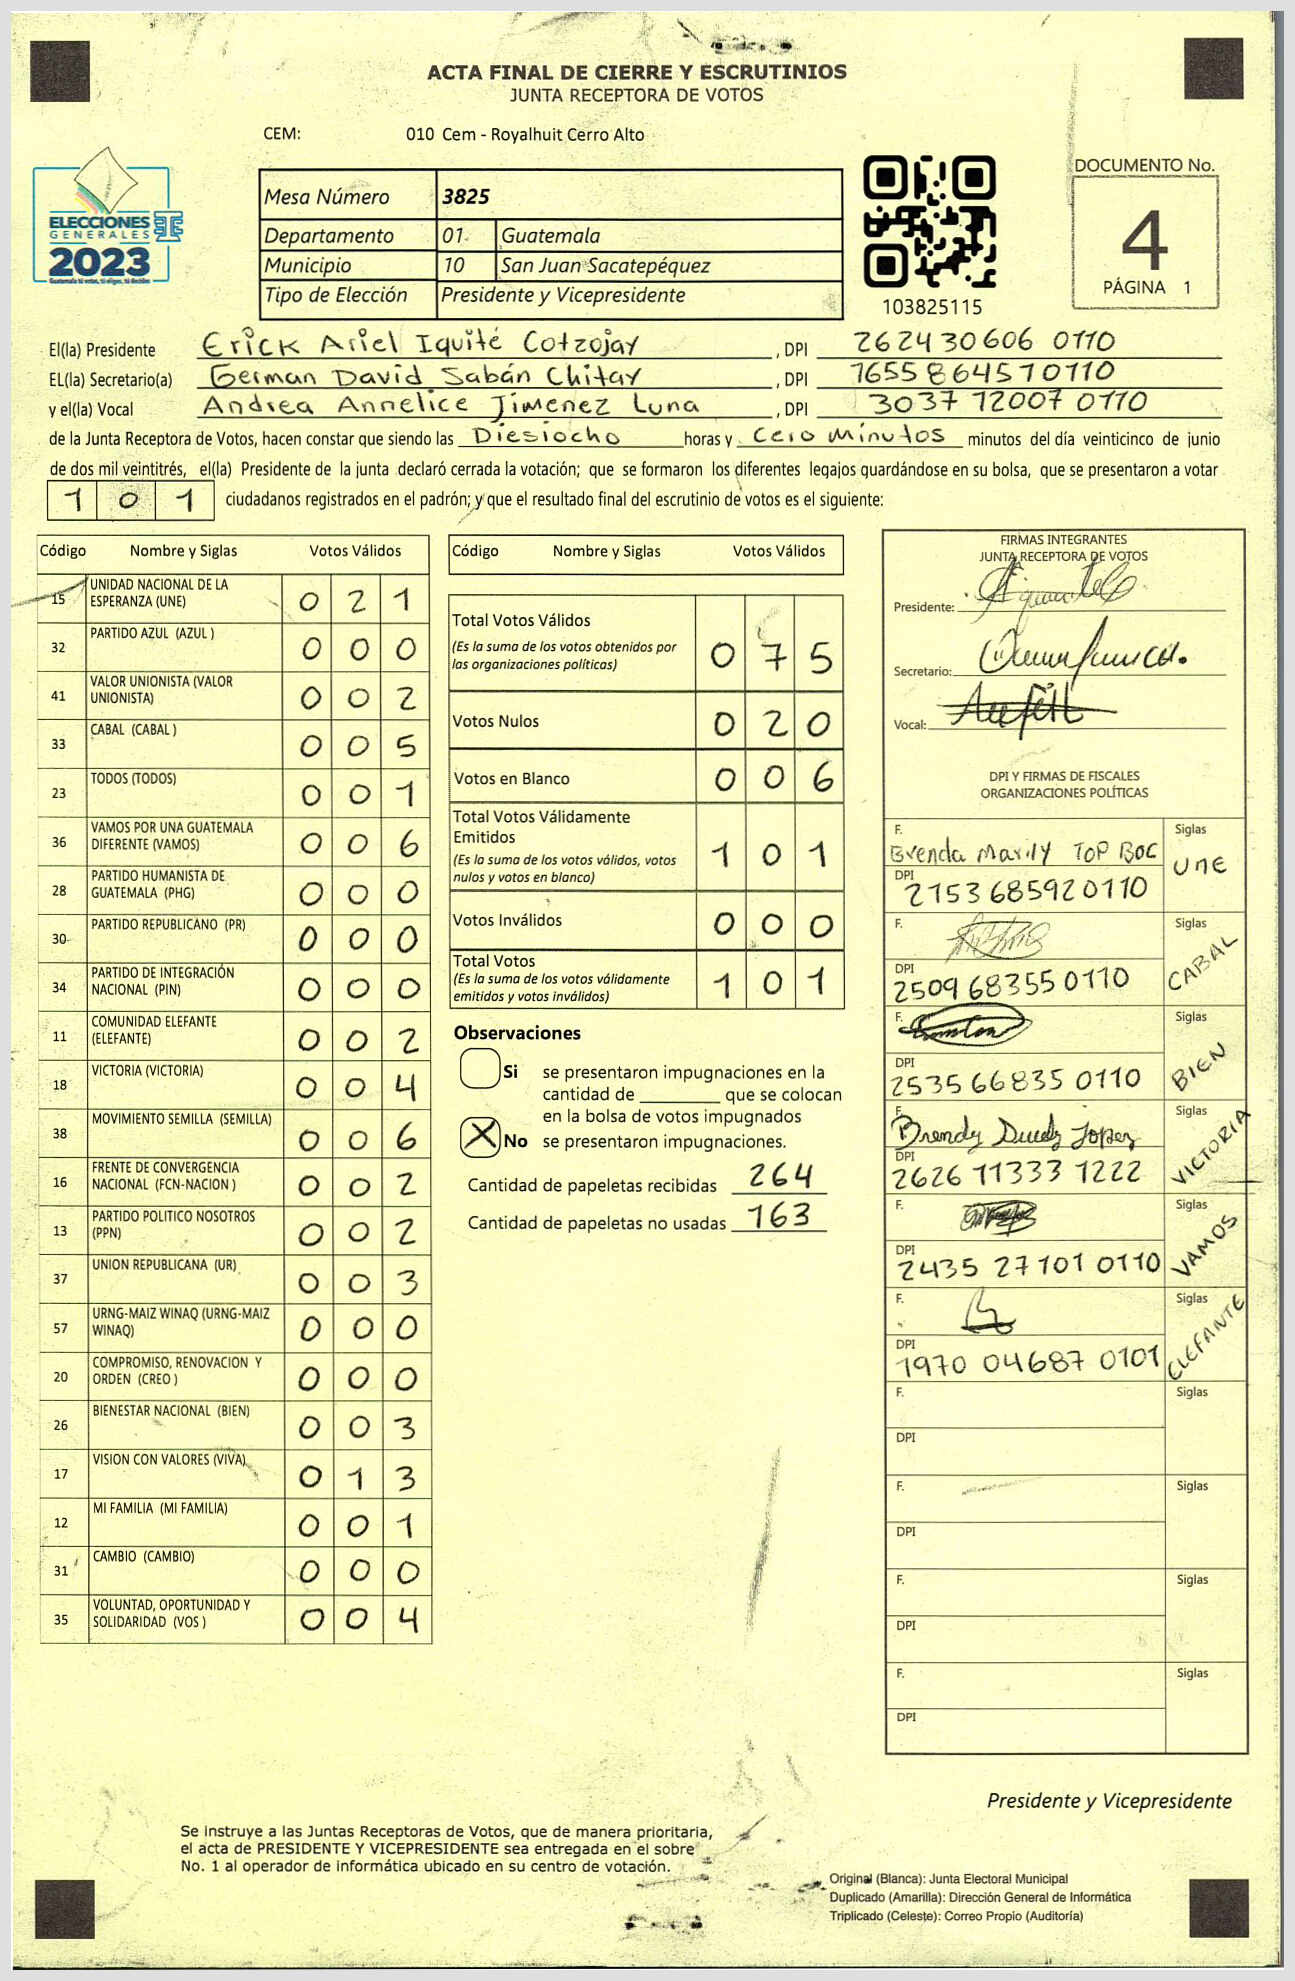 ACTA FINAL DE CIERRE Y ESCRUTINIOS
JUNTA RECEPTORA DE VOTOS
CEM: 010 Cem - Royalhuit Cerro Alto
ELECCIONES
GENERALES
2023
Guatemala tú votas, tú eliges, tú decides
Mesa Número 3825
Departamento 01 Guatemala
Municipio 10 San Juan Sacatepéquez
Tipo de Elección Presidente y Vicepresidente
103825115
DOCUMENTO No.
4
PÁGINA 1
El(la) Presidente Erick Ariel Iquité Cotzojay , DPI 262430606 0110
EL(la) Secretario(a) German David Sabán Chitay , DPI 1655864570110
y el(la) Vocal Andrea Annelice Jimenez Luna , DPI 3037 12007 0110
de la Junta Receptora de Votos, hacen constar que siendo las Diesiocho horas y Cero Minutos minutos del día veinticinco de junio
de dos mil veintitrés, el(la) Presidente de la junta declaró cerrada la votación; que se formaron los diferentes legajos guardándose en su bolsa, que se presentaron a votar
1 0 1 ciudadanos registrados en el padrón; y que el resultado final del escrutinio de votos es el siguiente:
Código Nombre y Siglas Votos Válidos
15 UNIDAD NACIONAL DE LA ESPERANZA (UNE) 0 2 1
32 PARTIDO AZUL (AZUL ) 0 0 0
41 VALOR UNIONISTA (VALOR UNIONISTA) 0 0 2
33 CABAL (CABAL ) 0 0 5
23 TODOS (TODOS) 0 0 1
36 VAMOS POR UNA GUATEMALA DIFERENTE (VAMOS) 0 0 6
28 PARTIDO HUMANISTA DE GUATEMALA (PHG) 0 0 0
30 PARTIDO REPUBLICANO (PR) 0 0 0
34 PARTIDO DE INTEGRACIÓN NACIONAL (PIN) 0 0 0
11 COMUNIDAD ELEFANTE (ELEFANTE) 0 0 2
18 VICTORIA (VICTORIA) 0 0 4
38 MOVIMIENTO SEMILLA (SEMILLA) 0 0 6
16 FRENTE DE CONVERGENCIA NACIONAL (FCN-NACION ) 0 0 2
13 PARTIDO POLITICO NOSOTROS (PPN) 0 0 2
37 UNION REPUBLICANA (UR) 0 0 3
57 URNG-MAIZ WINAQ (URNG-MAIZ WINAQ) 0 0 0
20 COMPROMISO, RENOVACION Y ORDEN (CREO ) 0 0 0
26 BIENESTAR NACIONAL (BIEN) 0 0 3
17 VISION CON VALORES (VIVA) 0 1 3
12 MI FAMILIA (MI FAMILIA) 0 0 1
31 CAMBIO (CAMBIO) 0 0 0
35 VOLUNTAD, OPORTUNIDAD Y SOLIDARIDAD (VOS ) 0 0 4
Código Nombre y Siglas Votos Válidos
Total Votos Válidos 0 7 5
(Es la suma de los votos obtenidos por
las organizaciones políticas)
Votos Nulos 0 2 0
Votos en Blanco 0 0 6
Total Votos Válidamente
Emitidos 1 0 1
(Es la suma de los votos válidos, votos
nulos y votos en blanco)
Votos Inválidos 0 0 0
Total Votos 1 0 1
(Es la suma de los votos válidamente
emitidos y votos inválidos)
Observaciones
Si se presentaron impugnaciones en la
cantidad de ________ que se colocan
en la bolsa de votos impugnados
X No se presentaron impugnaciones.
Cantidad de papeletas recibidas 264
Cantidad de papeletas no usadas 163
FIRMAS INTEGRANTES
JUNTA RECEPTORA DE VOTOS
Presidente:
Secretario:
Vocal:
DPI Y FIRMAS DE FISCALES
ORGANIZACIONES POLÍTICAS
F. Brenda Marily TOP BOC Siglas UNE
DPI 2153 68592 0110
F. Siglas CABAL
DPI 2509 68355 0110
F. Siglas BIEN
DPI 2535 66835 0110
F. Brendy Lopez Siglas VICTORIA
DPI 2626 11333 1222
F. Siglas VAMOS
DPI 2435 27101 0110
F. Siglas ELEFANTE
DPI 1970 04687 0101
F. Siglas
DPI
F. Siglas
DPI
F. Siglas
DPI
F. Siglas
DPI
Presidente y Vicepresidente
Se instruye a las Juntas Receptoras de Votos, que de manera prioritaria,
el acta de PRESIDENTE Y VICEPRESIDENTE sea entregada en el sobre
No. 1 al operador de informática ubicado en su centro de votación.
Original (Blanca): Junta Electoral Municipal
Duplicado (Amarilla): Dirección General de Informática
Triplicado (Celeste): Correo Propio (Auditoría)